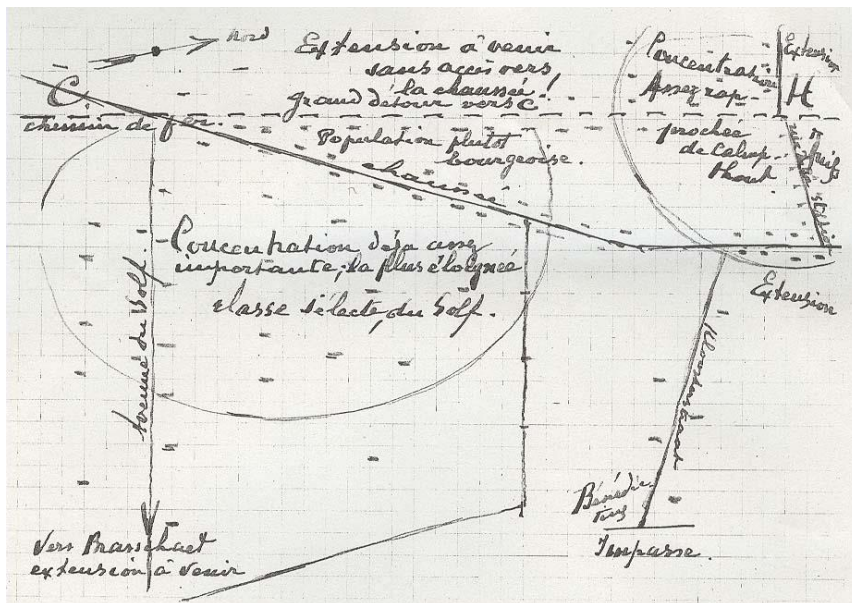 Nord
Extension à venir
sans accès vers
la chaussée!
grand détour vers C
C.
chemin de fer.
Population plutôt
bourgeoise.
chaussée
Concentration
Assez rap-
prochée
de Calmp-
thout.
Extension
H
Concentration déja assez
importante, la plus éloignée
classe sélecte, du Golf.
Avenue du Golf.
Extension
Bénédic-
tins
Impasse.
Vers Brasschaet
extension à venir